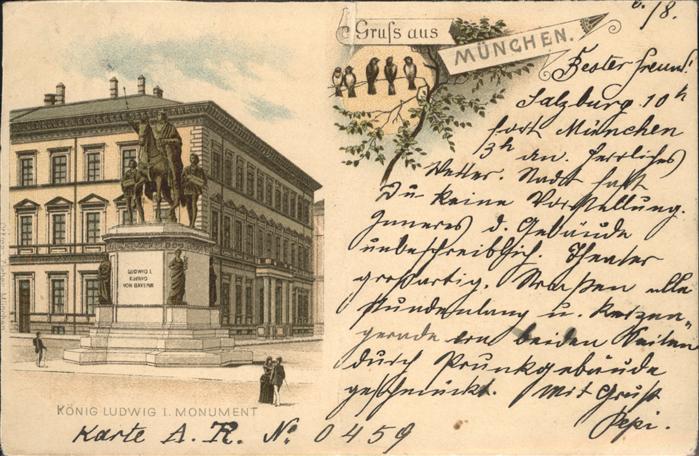 6./8.
Gruß aus
MÜNCHEN.
Bester Freund!
Salzburg 10 h
fort München
3h an. Herrliches
Wetter. Stadt hast
Du keine Vorstellung.
Inneres d. Gebäude
unbeschreiblich. Theater
großartig. Straßen alle
stundenlang u. Kerzen"
gerade von beiden Seiten
durch Prunkgebäude
geschmückt. Mit Gruß
Pepi.
LUDWIG I
KOENIG
VON BAYERN
KÖNIG LUDWIG I. MONUMENT
Karte A. R. No 0459